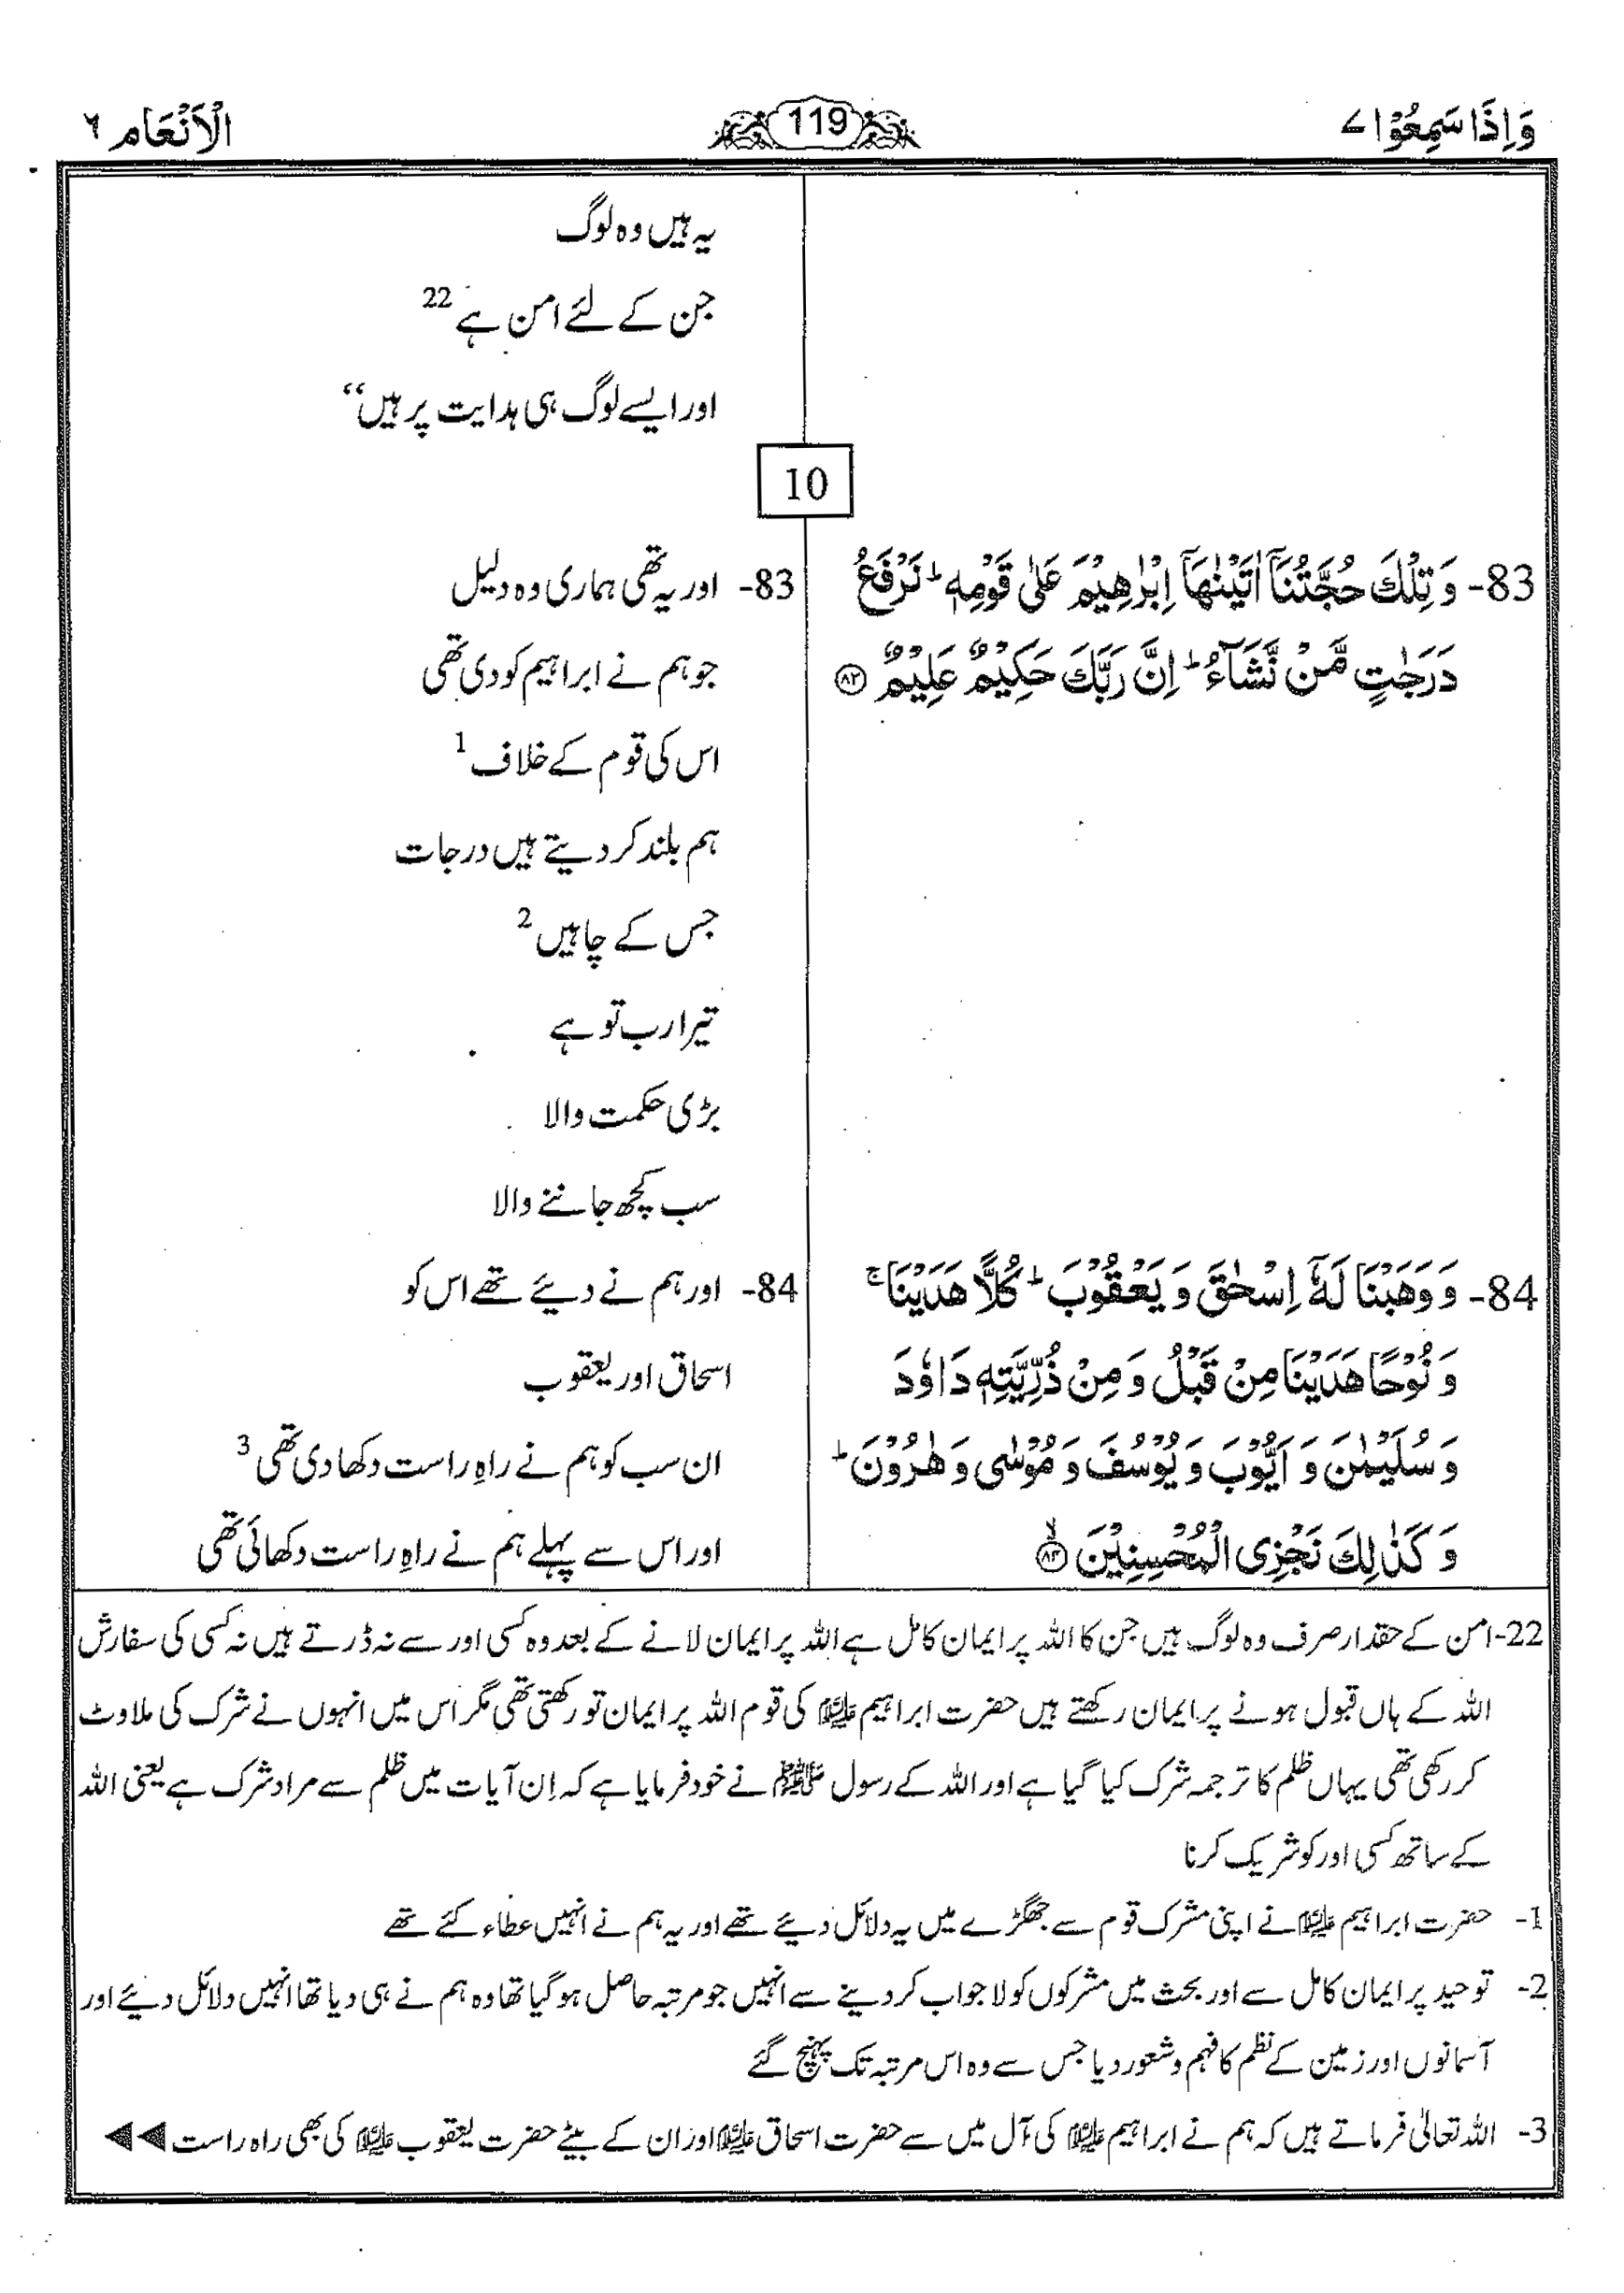 وَاِذَا سَمِعُوْا ۷
119
الْاَنْعَام ٦
یہ ہیں وہ لوگ
جن کے لئے امن ہے 22
اور ایسے لوگ ہی ہدایت پر ہیں“
10
83- وَ تِلْكَ حُجَّتُنَاۤ اٰتَيْنٰهَاۤ اِبْرٰهِيْمَ عَلٰى قَوْمِهٖ ؕ نَرْفَعُ
دَرَجٰتٍ مَّنْ نَّشَآءُ ؕ اِنَّ رَبَّكَ حَكِيْمٌ عَلِيْمٌ ﴿۸۳﴾
83- اور یہ تھی ہماری وہ دلیل
جو ہم نے ابراہیم کو دی تھی
اس کی قوم کے خلاف 1
ہم بلند کر دیتے ہیں درجات
جس کے چاہیں 2
تیرا رب تو ہے
بڑی حکمت والا
سب کچھ جاننے والا
84- وَ وَهَبْنَا لَهٗۤ اِسْحٰقَ وَ يَعْقُوْبَ ؕ كُلًّا هَدَيْنَا ۚ
وَ نُوْحًا هَدَيْنَا مِنْ قَبْلُ وَ مِنْ ذُرِّيَّتِهٖ دَاوٗدَ
وَ سُلَيْمٰنَ وَ اَيُّوْبَ وَ يُوْسُفَ وَ مُوْسٰى وَ هٰرُوْنَ ؕ
وَ كَذٰلِكَ نَجْزِى الْمُحْسِنِيْنَ ۙ﴿۸۴﴾
84- اور ہم نے دیئے تھے اس کو
اسحاق اور یعقوب
ان سب کو ہم نے راہِ راست دکھا دی تھی 3
اور اس سے پہلے ہم نے راہِ راست دکھائی تھی
22- امن کے حقدار صرف وہ لوگ ہیں جن کا اللہ پر ایمان کامل ہے اللہ پر ایمان لانے کے بعد وہ کسی اور سے نہ ڈرتے ہیں نہ کسی کی سفارش
اللہ کے ہاں قبول ہونے پر ایمان رکھتے ہیں حضرت ابراہیم علیہ السلام کی قوم اللہ پر ایمان تو رکھتی تھی مگر اس میں انہوں نے شرک کی ملاوٹ
کر رکھی تھی یہاں ظلم کا ترجمہ شرک کیا گیا ہے اور اللہ کے رسول ﷺ نے خود فرمایا ہے کہ اِن آیات میں ظلم سے مراد شرک ہے یعنی اللہ
کے ساتھ کسی اور کو شریک کرنا
1- حضرت ابراہیم علیہ السلام نے اپنی مشرک قوم سے جھگڑے میں یہ دلائل دیئے تھے اور یہ ہم نے انہیں عطاء کئے تھے
2- توحید پر ایمان کامل سے اور بحث میں مشرکوں کو لاجواب کر دینے سے انہیں جو مرتبہ حاصل ہو گیا تھا وہ ہم نے ہی دیا تھا انہیں دلائل دیئے اور
آسمانوں اور زمین کے نظم کا فہم و شعور دیا جس سے وہ اس مرتبہ تک پہنچ گئے
3- اللہ تعالیٰ فرماتے ہیں کہ ہم نے ابراہیم علیہ السلام کی آل میں سے حضرت اسحاق علیہ السلام اور ان کے بیٹے حضرت یعقوب علیہ السلام کی بھی راہ راست ◄◄